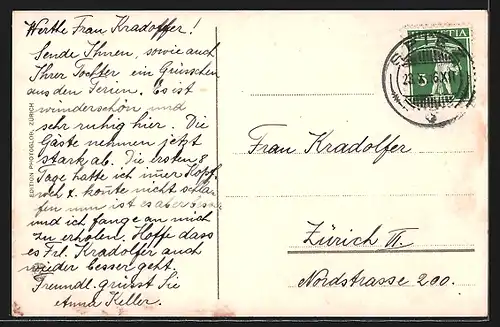 Werthe Frau Kradolfer!
Sende Ihnen, sowie auch
Ihrer Tochter ein Grüsschen
aus den Ferien. Es ist
wunderschön und
sehr ruhig hier. Die
Gäste nehmen jetzt
stark ab. Die ersten 8
Tage hatte ich immer Kopf-
weh & konte nicht schla-
fen nun ist es aber besser
und ich fange an mich
zu erholen. Hoffe dass
es Frl. Kradolfer auch
wieder besser geht.
Freundl. grüsst Sie
Anna Keller.
EDITION PHOTOGLOB, ZÜRICH
HELVETIA
Frau Kradolfer
Zürich VI.
Nordstrasse 200.